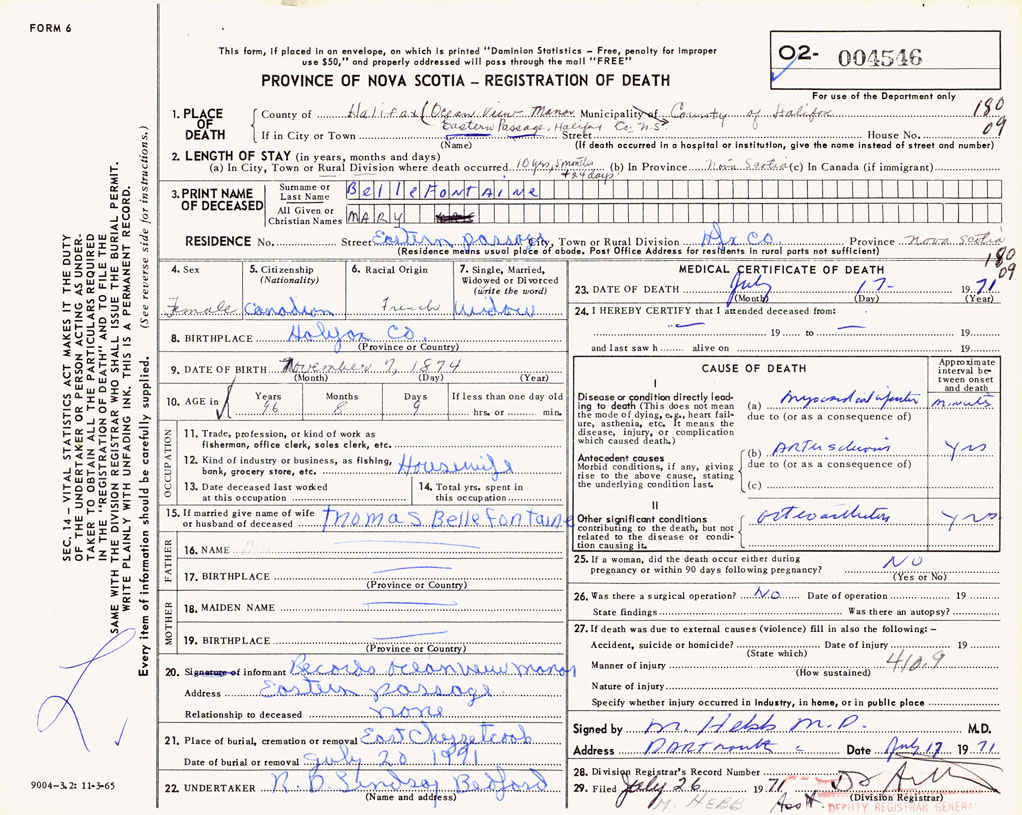 FORM 6
This form, if placed in an envelope, on which is printed "Dominion Statistics – Free, penalty for improper
use $50," and properly addressed will pass through the mail "FREE"
PROVINCE OF NOVA SCOTIA – REGISTRATION OF DEATH
02- 004546
For use of the Department only
180
09
1. PLACE OF DEATH
County of Halifax (Ocean View Manor Municipality of County of Halifax
If in City or Town Eastern Passage, Halifax Co. N.S. Street House No.
(Name) (If death occurred in a hospital or institution, give the name instead of street and number)
2. LENGTH OF STAY (in years, months and days)
(a) In City, Town or Rural Division where death occurred 10 yrs, 5 months + 24 days (b) In Province Nova Scotia (c) In Canada (if immigrant)
3. PRINT NAME OF DECEASED
Surname or Last Name BelleFontaine
All Given or Christian Names MARY
RESIDENCE No. Street Eastern passage City, Town or Rural Division Hfx Co. Province Nova Scotia
(Residence means usual place of abode. Post Office Address for residents in rural parts not sufficient)
180
09
4. Sex
Female
5. Citizenship
(Nationality)
Canadian
6. Racial Origin
French
7. Single, Married,
Widowed or Divorced
(write the word)
Widow
8. BIRTHPLACE Halifax Co.
(Province or Country)
9. DATE OF BIRTH November 7, 1874
(Month) (Day) (Year)
10. AGE in
Years 96
Months 8
Days 9
If less than one day old
hrs. or min.
OCCUPATION
11. Trade, profession, or kind of work as
fisherman, office clerk, sales clerk, etc.
12. Kind of industry or business, as fishing,
bank, grocery store, etc. Housewife
13. Date deceased last worked
at this occupation
14. Total yrs. spent in
this occupation
15. If married give name of wife
or husband of deceased Thomas BelleFontaine
FATHER
16. NAME
17. BIRTHPLACE
(Province or Country)
MOTHER
18. MAIDEN NAME
19. BIRTHPLACE
(Province or Country)
20. Signature of informant Records Oceanview Manor
Address Eastern passage
Relationship to deceased none
21. Place of burial, cremation or removal East Chezzetcook
Date of burial or removal July 20 1971
22. UNDERTAKER R. D. Lindsay Bedford
(Name and address)
MEDICAL CERTIFICATE OF DEATH
23. DATE OF DEATH July 17 1971
(Month) (Day) (Year)
24. I HEREBY CERTIFY that I attended deceased from:
19 to 19
and last saw h alive on 19
CAUSE OF DEATH
Approximate
interval be-
tween onset
and death
I
Disease or condition directly lead-
ing to death (This does not mean
the mode of dying, e.g., heart fail-
ure, asthenia, etc. It means the
disease, injury, or complication
which caused death.)
(a) Myocardial infarction minutes
due to (or as a consequence of)
Antecedent causes
Morbid conditions, if any, giving
rise to the above cause, stating
the underlying condition last.
(b) Arterisclerosis yrs
due to (or as a consequence of)
(c)
II
Other significant conditions
contributing to the death, but not
related to the disease or condi-
tion causing it.
osteoarthritis yrs
25. If a woman, did the death occur either during
pregnancy or within 90 days following pregnancy? NO
(Yes or No)
26. Was there a surgical operation? NO Date of operation 19
State findings Was there an autopsy?
27. If death was due to external causes (violence) fill in also the following: –
Accident, suicide or homicide? Date of injury 19
(State which)
Manner of injury 410.9
(How sustained)
Nature of injury
Specify whether injury occurred in industry, in home, or in public place
Signed by M. Hebb M.D. M.D.
Address Dartmouth Date July 17 1971
28. Division Registrar's Record Number
29. Filed July 26 1971
(Division Registrar)
M. HEBB
Ass't.
DEPUTY REGISTRAR GENERAL
SEC. 14 – VITAL STATISTICS ACT MAKES IT THE DUTY
OF THE UNDERTAKER OR PERSON ACTING AS UNDER-
TAKER TO OBTAIN ALL THE PARTICULARS REQUIRED
IN THE "REGISTRATION OF DEATH" AND TO FILE THE
SAME WITH THE DIVISION REGISTRAR WHO SHALL ISSUE THE BURIAL PERMIT.
WRITE PLAINLY WITH UNFADING INK. THIS IS A PERMANENT RECORD.
Every item of information should be carefully supplied. (See reverse side for instructions.)
9004–3.2: 11-3-65